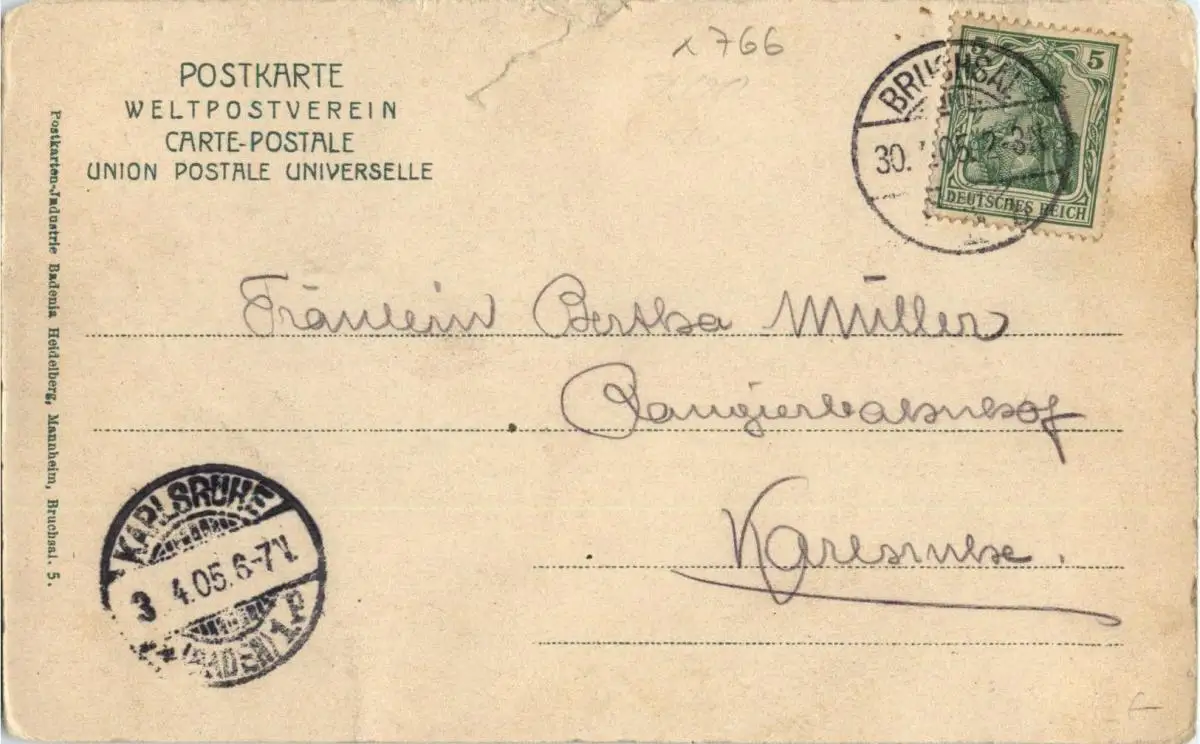 x 766
POSTKARTE
WELTPOSTVEREIN
CARTE-POSTALE
UNION POSTALE UNIVERSELLE
5
DEUTSCHES REICH
BRUCHSAL
30. .05. 2-3N
Fräulein Bertha Müller
Rangierbahnhof
Karlsruhe.
KARLSRUHE
3 4.05. 6-7V.
(BADEN) 1.P
Postkarten-Industrie Badenia Heidelberg, Mannheim, Bruchsal. 5.